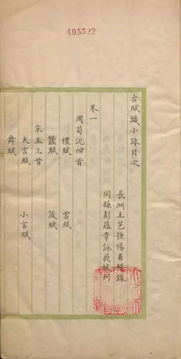 405522
古賦識小錄目次
長洲王芑孫惕甫評錄
同縣彭蘊章詠莪校刊
卷一
周荀況四首
禮賦 雲賦
蠶賦 箴賦
宋玉三首
大言賦 小言賦
舞賦